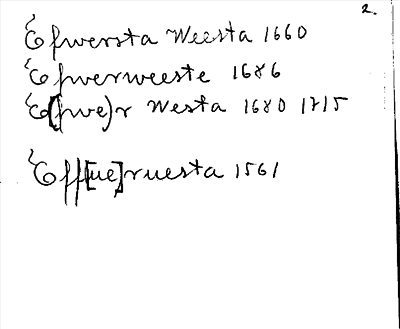 2.
Efwersta Weesta 1660
Efwerweeste 1686
E(fwe)r Westa 1680 1715
Eff[ue]ruesta 1561